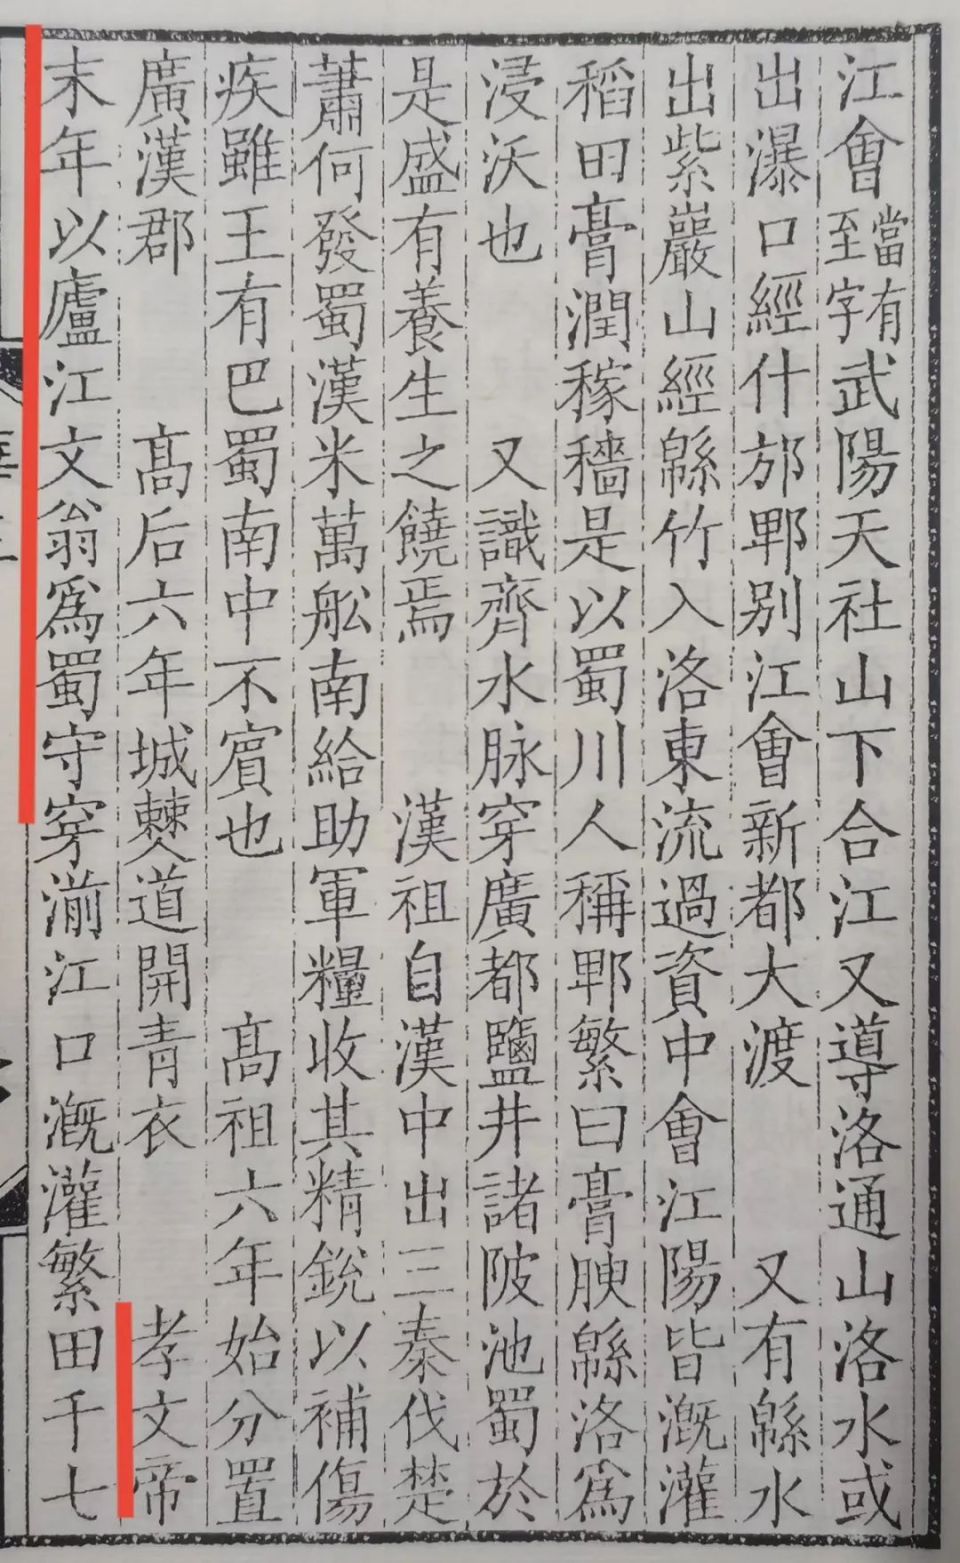 江會當有至字武陽天社山下合江又導洛通山洛水或
出瀑口經什邡郫别江會新都大渡　又有緜水
出紫巖山經緜竹入洛東流過資中會江陽皆溉灌
稻田膏潤稼穡是以蜀川人稱郫繁曰膏腴緜洛爲
浸沃也　又識齊水脉穿廣都鹽井諸陂池蜀於
是盛有養生之饒焉　漢祖自漢中出三秦伐楚
蕭何發蜀漢米萬舩南給助軍糧收其精銳以補傷
疾雖王有巴蜀南中不賓也　高祖六年始分置
廣漢郡　高后六年城僰道開青衣　孝文帝
末年以廬江文翁爲蜀守穿湔江口溉灌繁田千七